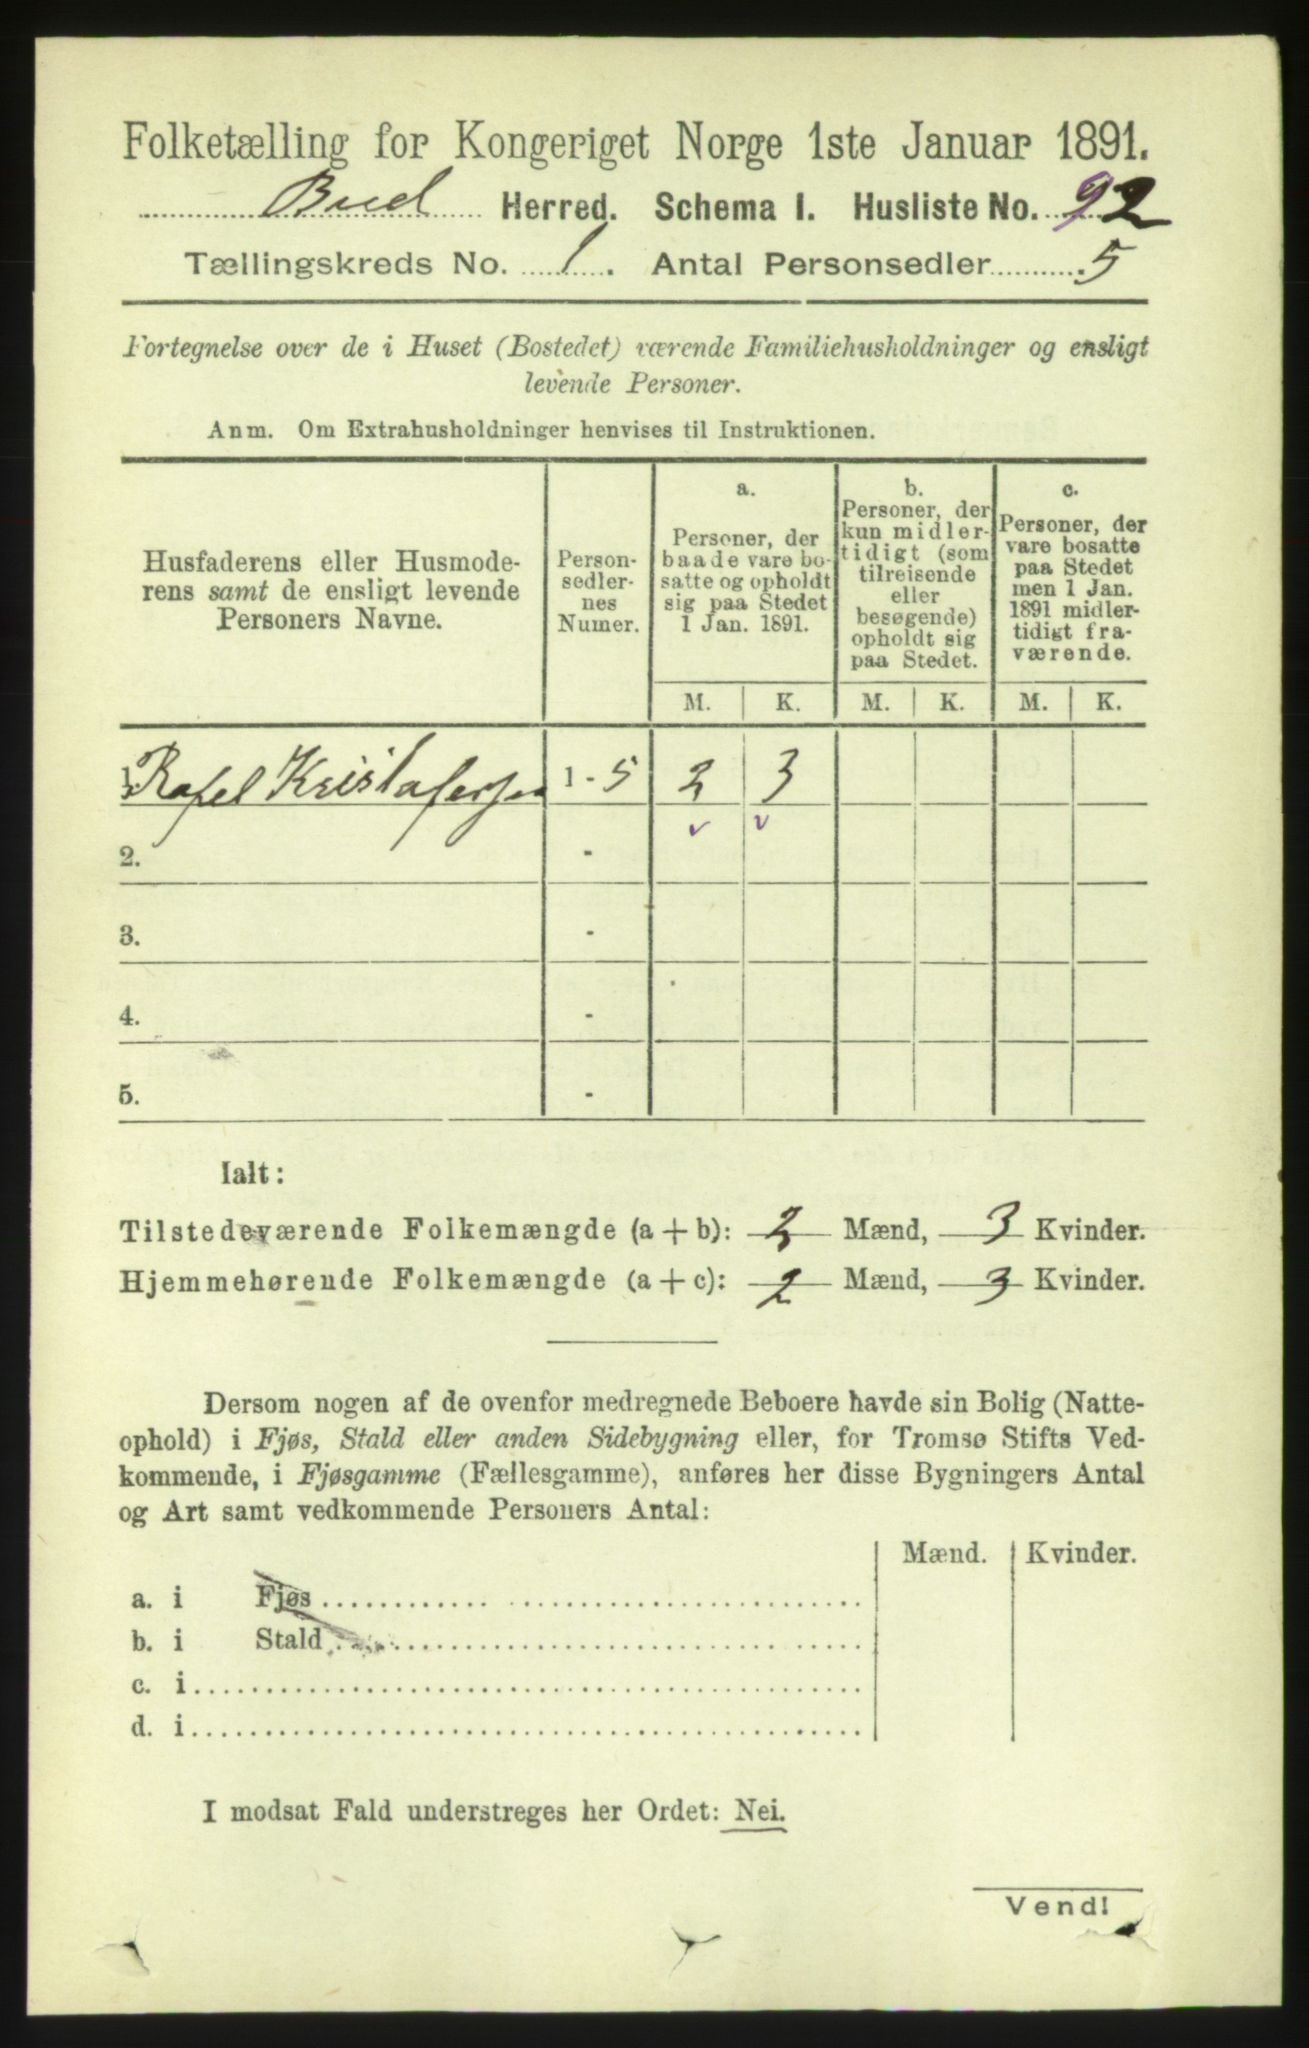 Folketælling for Kongeriget Norge 1ste Januar 1891.
Bud Herred. Schema I. Husliste No. 92
Tællingskreds No. 1. Antal Personsedler 5
Fortegnelse over de i Huset (Bostedet) værende Familiehusholdninger og ensligt
levende Personer.
Anm. Om Extrahusholdninger henvises til Instruktionen.
Husfaderens eller Husmode-
rens samt de ensligt levende
Personers Navne.
Person-
sedler-
nes
Numer.
a.
Personer, der
baade vare bo-
satte og opholdt
sig paa Stedet
1 Jan. 1891.
b.
Personer, der
kun midler-
tidigt (som
tilreisende
eller
besøgende)
opholdt sig
paa Stedet.
c.
Personer, der
vare bosatte
paa Stedet
men 1 Jan.
1891 midler-
tidigt fra-
værende.
M. K. M. K. M. K.
1. Rafel Kristafersen 1 - 5 2 3
2. -
3. -
4. -
5. -
Ialt:
Tilstedeværende Folkemængde (a + b): 2 Mænd, 3 Kvinder.
Hjemmehørende Folkemængde (a + c): 2 Mænd, 3 Kvinder.
Dersom nogen af de ovenfor medregnede Beboere havde sin Bolig (Natte-
ophold) i Fjøs, Stald eller anden Sidebygning eller, for Tromsø Stifts Ved-
kommende, i Fjøsgamme (Fællesgamme), anføres her disse Bygningers Antal
og Art samt vedkommende Personers Antal:
Mænd. Kvinder.
a. i Fjøs
b. i Stald
c. i
d. i
I modsat Fald understreges her Ordet: Nei.
Vend!